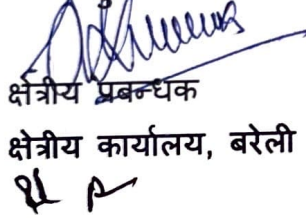 क्षेत्रीय प्रबन्धक
क्षेत्रीय कार्यालय, बरेली